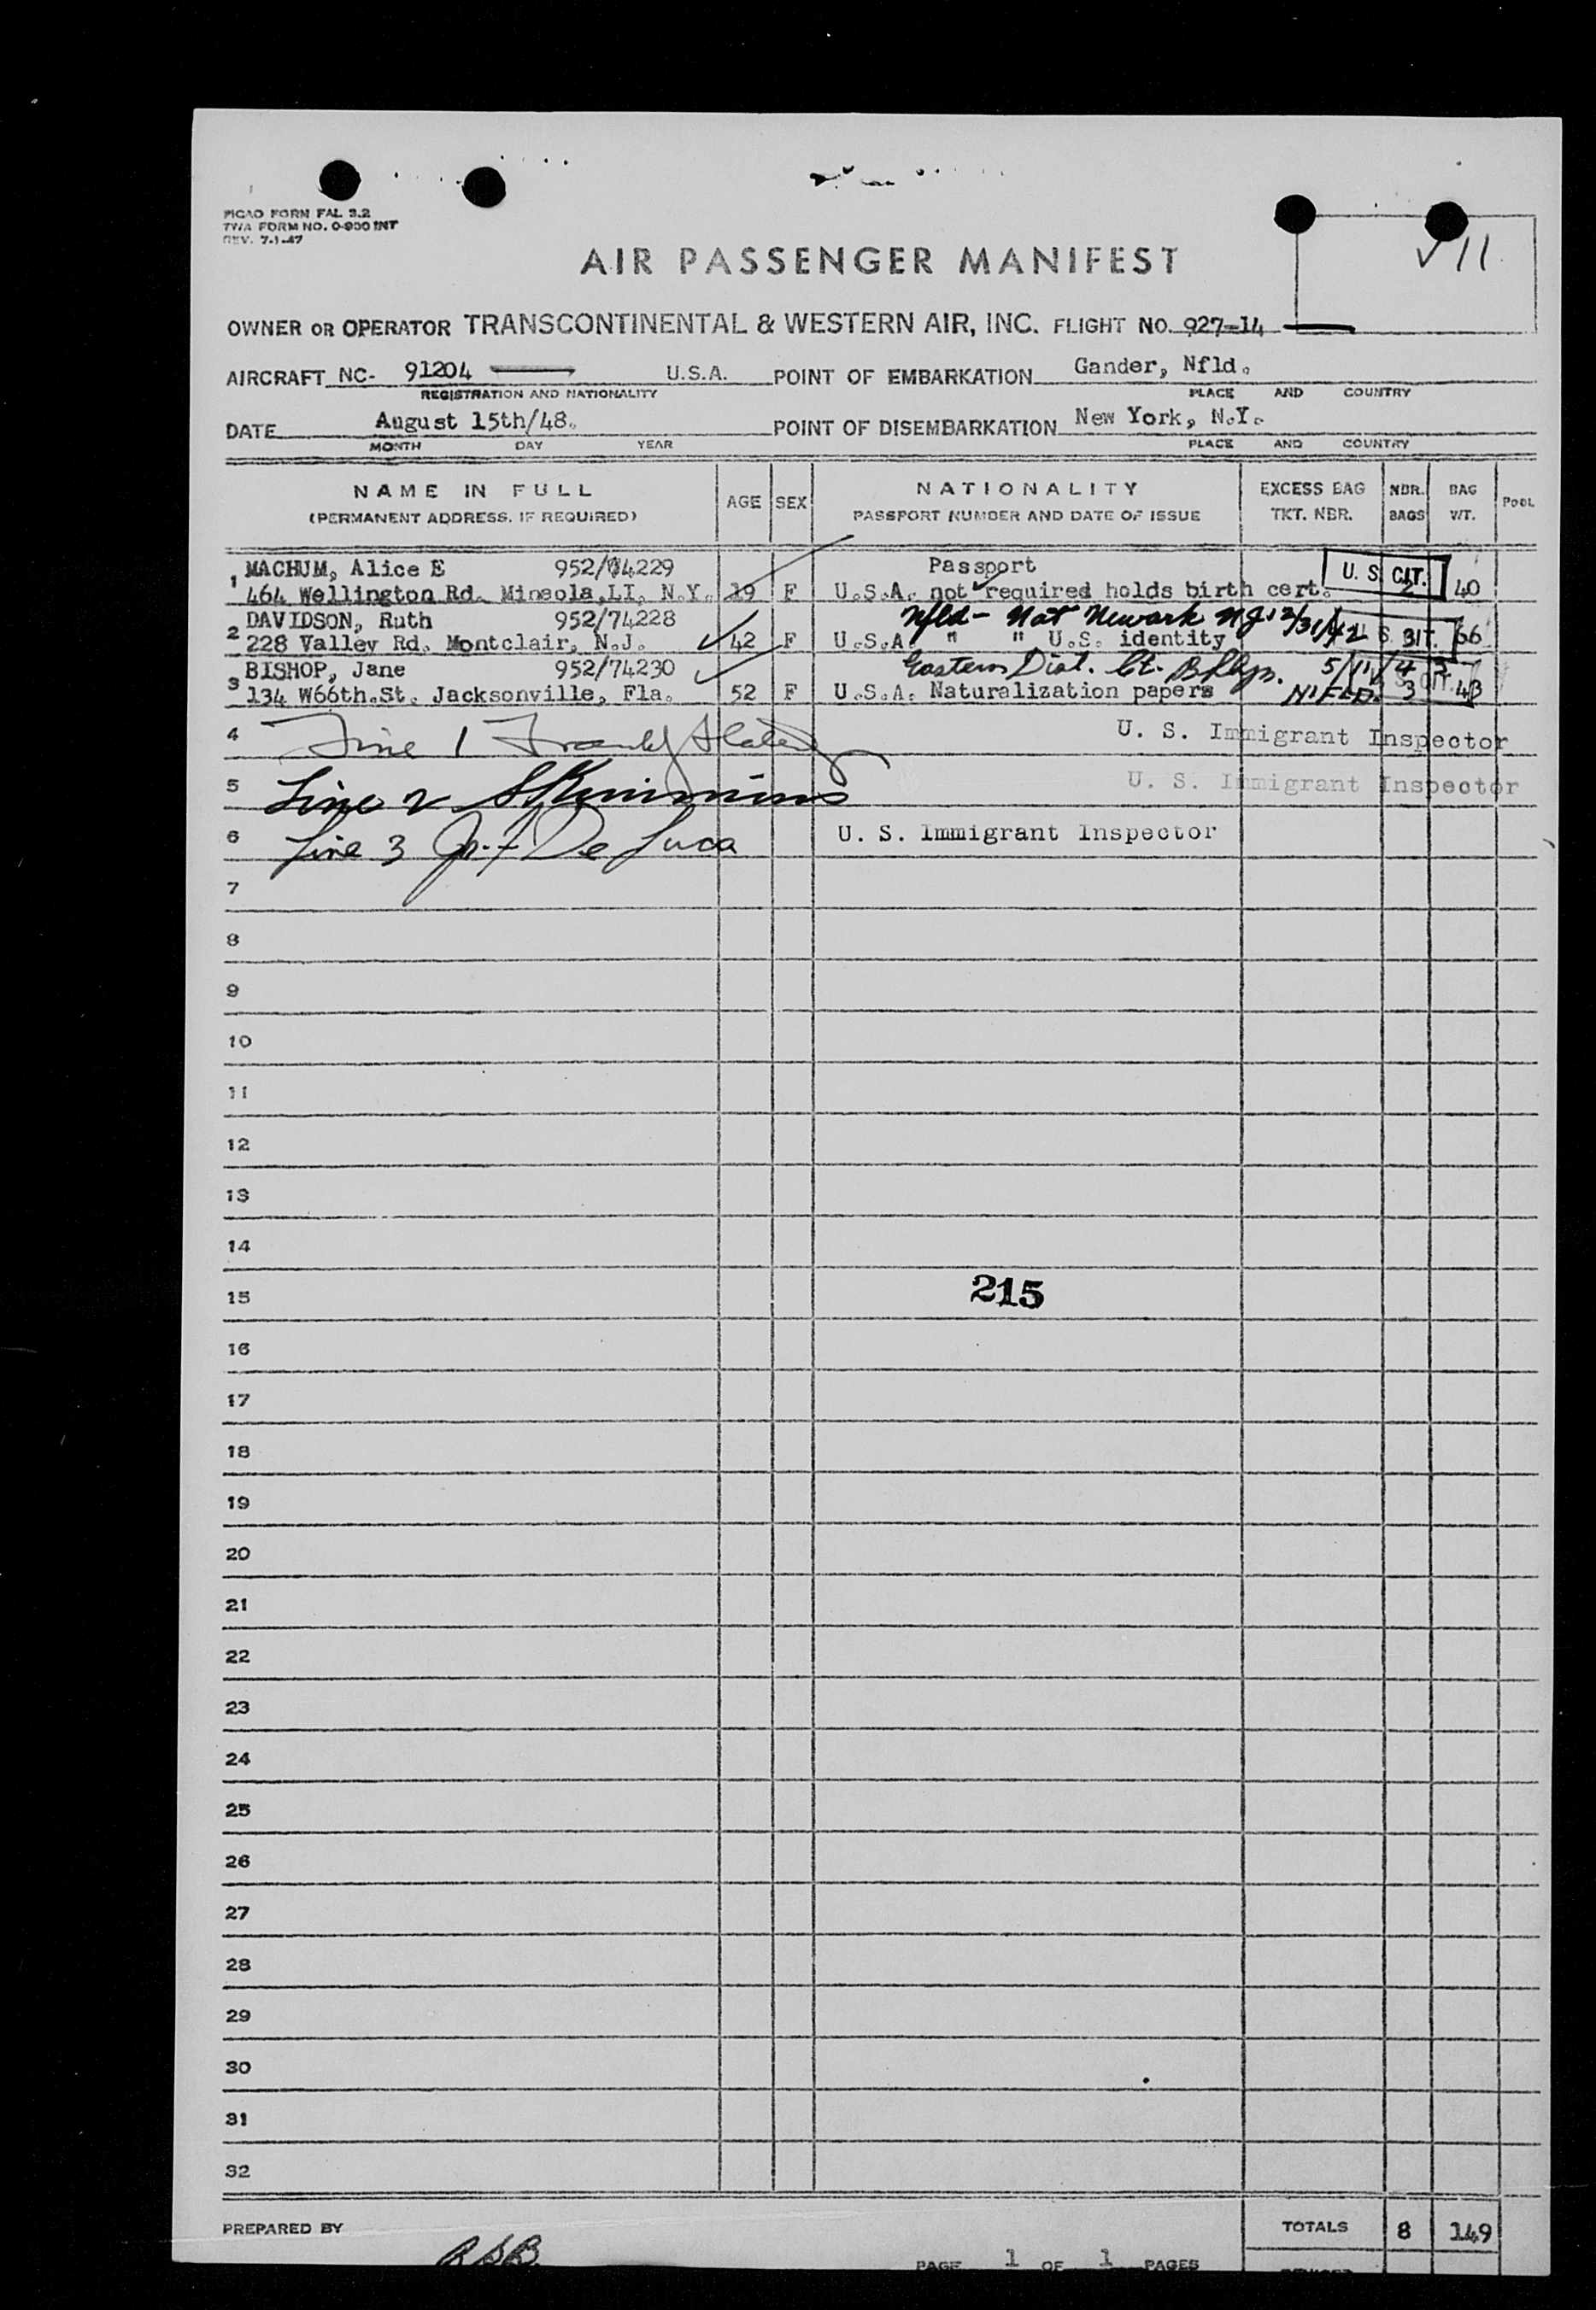 PICAO FORM FAL 3.2
TWA FORM NO. O-900 INT
REV. 7-1-47
√ 11
AIR PASSENGER MANIFEST
OWNER OR OPERATOR TRANSCONTINENTAL & WESTERN AIR, INC. FLIGHT NO. 927-14
AIRCRAFT NC- 91204 U.S.A. POINT OF EMBARKATION Gander, Nfld.
REGISTRATION AND NATIONALITY PLACE AND COUNTRY
DATE August 15th/48. POINT OF DISEMBARKATION New York, N.Y.
MONTH DAY YEAR PLACE AND COUNTRY
NAME IN FULL AGE SEX NATIONALITY EXCESS BAG NBR. BAG POOL
(PERMANENT ADDRESS, IF REQUIRED) PASSPORT NUMBER AND DATE OF ISSUE TKT. NBR. BAGS WT.
MACHUM, Alice E 952/74229 Passport U. S. CIT.
1 464 Wellington Rd. Mineola,LI, N.Y. 19 F U.S.A. not required holds birth cert. 2 40
DAVIDSON, Ruth 952/74228 Nfld - Nat Newark NJ 12/31/42
2 228 Valley Rd. Montclair, N.J. 42 F U.S.A. " " U.S. identity 3 66
BISHOP, Jane 952/74230 Eastern Dist. Ct. Bklyn. 5/11/43
3 134 W66th.St. Jacksonville, Fla. 52 F U.S.A. Naturalization papers NFLD. 3 43
4 Line 1 U. S. Immigrant Inspector
5 Line 2 U. S. Immigrant Inspector
6 Line 3 De Luca U. S. Immigrant Inspector
7
8
9
10
11
12
13
14
15 215
16
17
18
19
20
21
22
23
24
25
26
27
28
29
30
31
32
PREPARED BY TOTALS 8 149
RSB PAGE 1 OF 1 PAGES